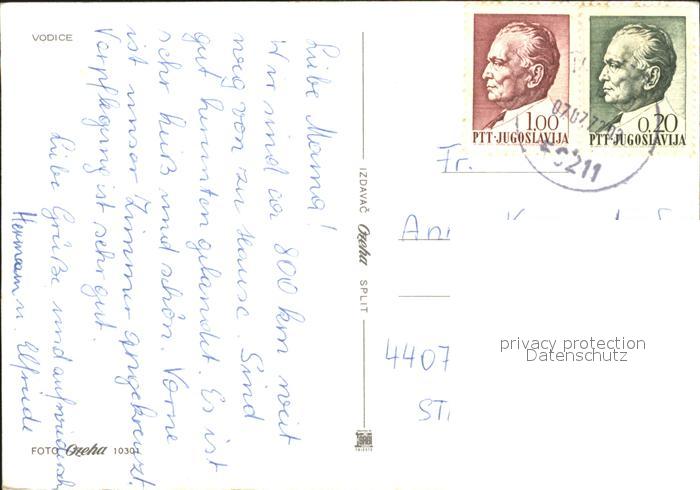 VODICE
Liebe Mama!
Wir sind ca 800 km weit
weg von zu Hause. Sind
gut herunten gelandet. Es ist
sehr heiß und schön. Vorne
ist unser Zimmer angekreuzt.
Verpflegung ist sehr gut.
Liebe Grüße und aufwiedersh
Hermann u. Elfriede
FOTO Ozeha 10301
IZDAVAČ Ozeha SPLIT
1.00
PTT-JUGOSLAVIJA
0,20
PTT-JUGOSLAVIJA
Fr.
4407
privacy protection
Datenschutz